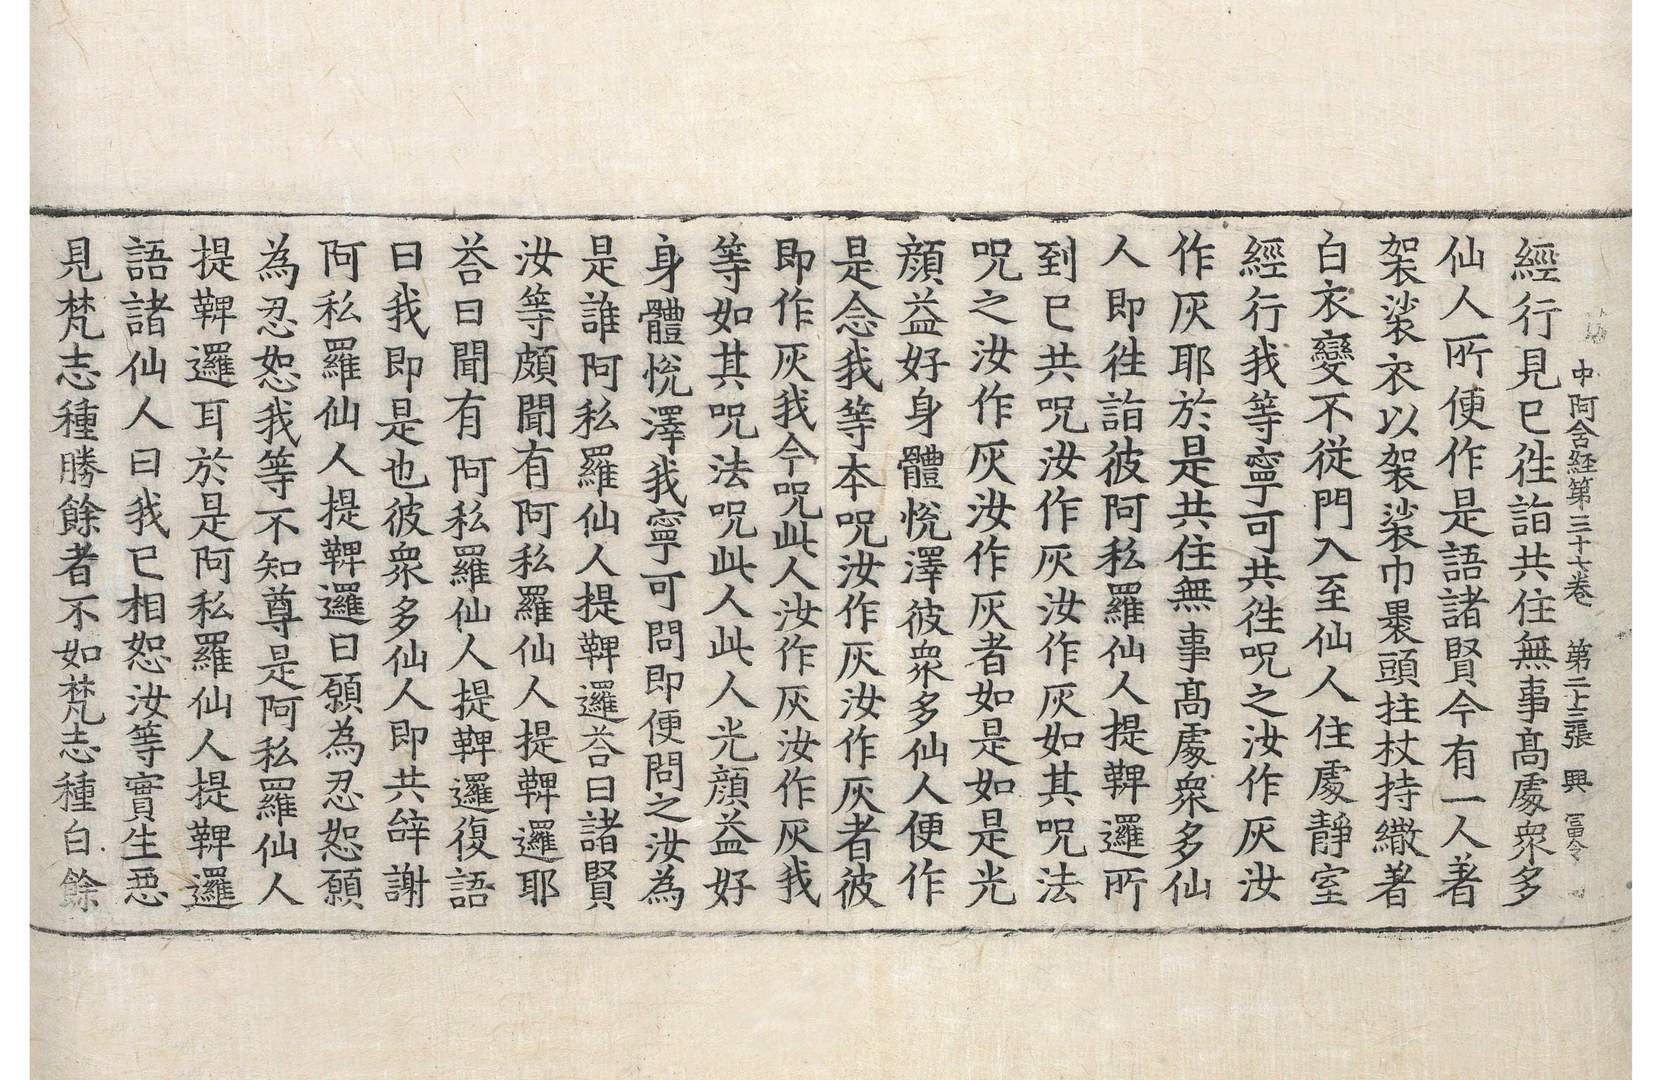 中阿含経第三十七卷 第二十三張 興 冨令
經行見已徃詣共住無事髙處衆多
仙人所便作是語諸賢今有一人著
袈裟衣以袈裟巾褁頭拄杖持繖著
白衣變不從門入至仙人住處靜室
經行我等寧可共徃呪之汝作灰汝
作灰耶於是共住無事髙處衆多仙
人即徃詣彼阿私羅仙人提鞞邏所
到已共呪汝作灰汝作灰如其呪法
呪之汝作灰汝作灰者如是如是光
顔益好身體悅澤彼衆多仙人便作
是念我等本呪汝作灰汝作灰者彼
即作灰我今呪此人汝作灰汝作灰我
等如其呪法呪此人此人光顔益好
身體悅澤我寧可問即便問之汝為
是誰阿私羅仙人提鞞邏荅曰諸賢
汝等頗聞有阿私羅仙人提鞞邏耶
荅曰聞有阿私羅仙人提鞞邏復語
曰我即是也彼衆多仙人即共辞謝
阿私羅仙人提鞞邏曰願為忍恕願
為忍恕我等不知尊是阿私羅仙人
提鞞邏耳於是阿私羅仙人提鞞邏
語諸仙人曰我已相恕汝等實生惡
見梵志種勝餘者不如梵志種白餘